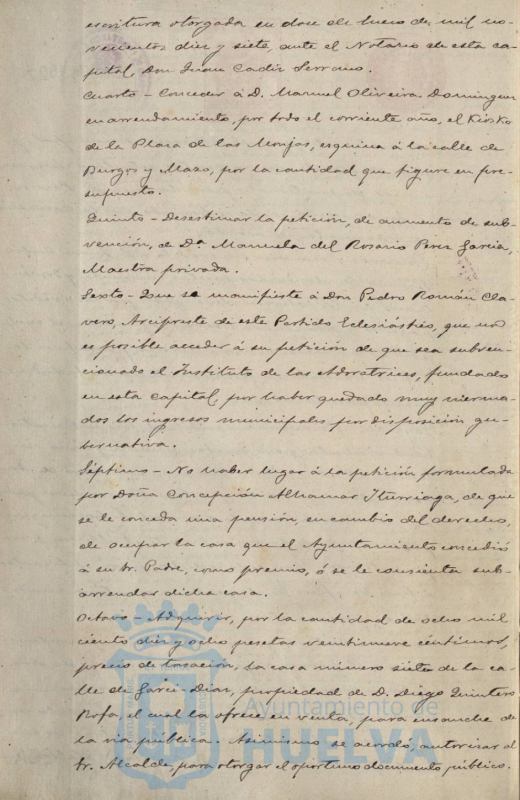 escritura otorgada en doce de Enero de mil no-
vecientos diez y siete, ante el Notario de esta ca-
pital, Don Juan Cadiz Serrano.
Cuarto - Conceder á D. Manuel Oliveira Dominguez
en arrendamiento, por todo el corriente año, el Kiosko
de la Plaza de las Monjas, esquina á la calle de
Burgos y Mazo, por la cantidad que figure en pre-
supuesto.
Quinto - Desestimar la petición, de aumento de sub-
vención, de Dª Manuela del Rosario Perez García,
Maestra privada.
Sexto - Que se manifieste á Don Pedro Román Cla-
vero, Arcipreste de este Partido Eclesiástico, que no
es posible acceder á su petición de que sea subven-
cionado el Instituto de las Adoratrices, fundado
en esta capital, por haber quedado muy merma-
dos los ingresos municipales por disposición gu-
bernativa.
Séptimo - No haber lugar á la petición formulada
por Doña Concepción Alhamar Iturriaga, de que
se le conceda una pensión, en cambio del derecho,
de ocupar la casa que el Ayuntamiento concedió
á su Sr. Padre, como premio, ó se le consienta sub-
arrendar dicha casa.
Octavo - Adquirir, por la cantidad de ocho mil
ciento diez y ocho pesetas veintinueve céntimos,
precio de tasación, la casa número siete de la ca-
lle de Garci-Diaz, propiedad de D. Diego Quintero
Rofa, el cual la ofrece en venta, para ensanche de
la via pública. Asimismo se acordó, autorizar al
Sr. Alcalde, para otorgar el oportuno documento público.
Ayuntamiento de
HUELVA